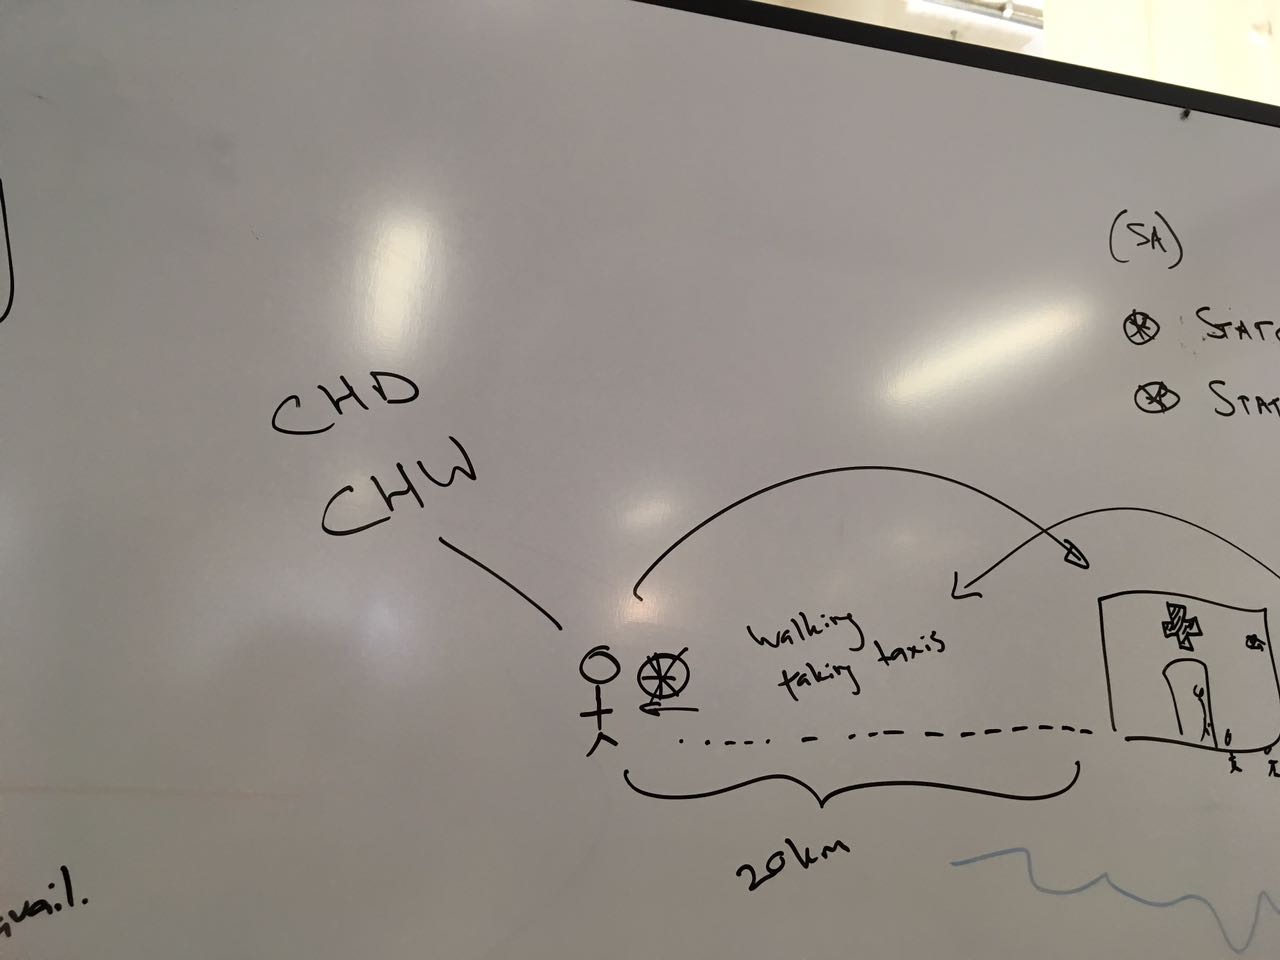 (SA)
STAT
STAT
CHD
CHW
walking
taking taxis
20km
avail.